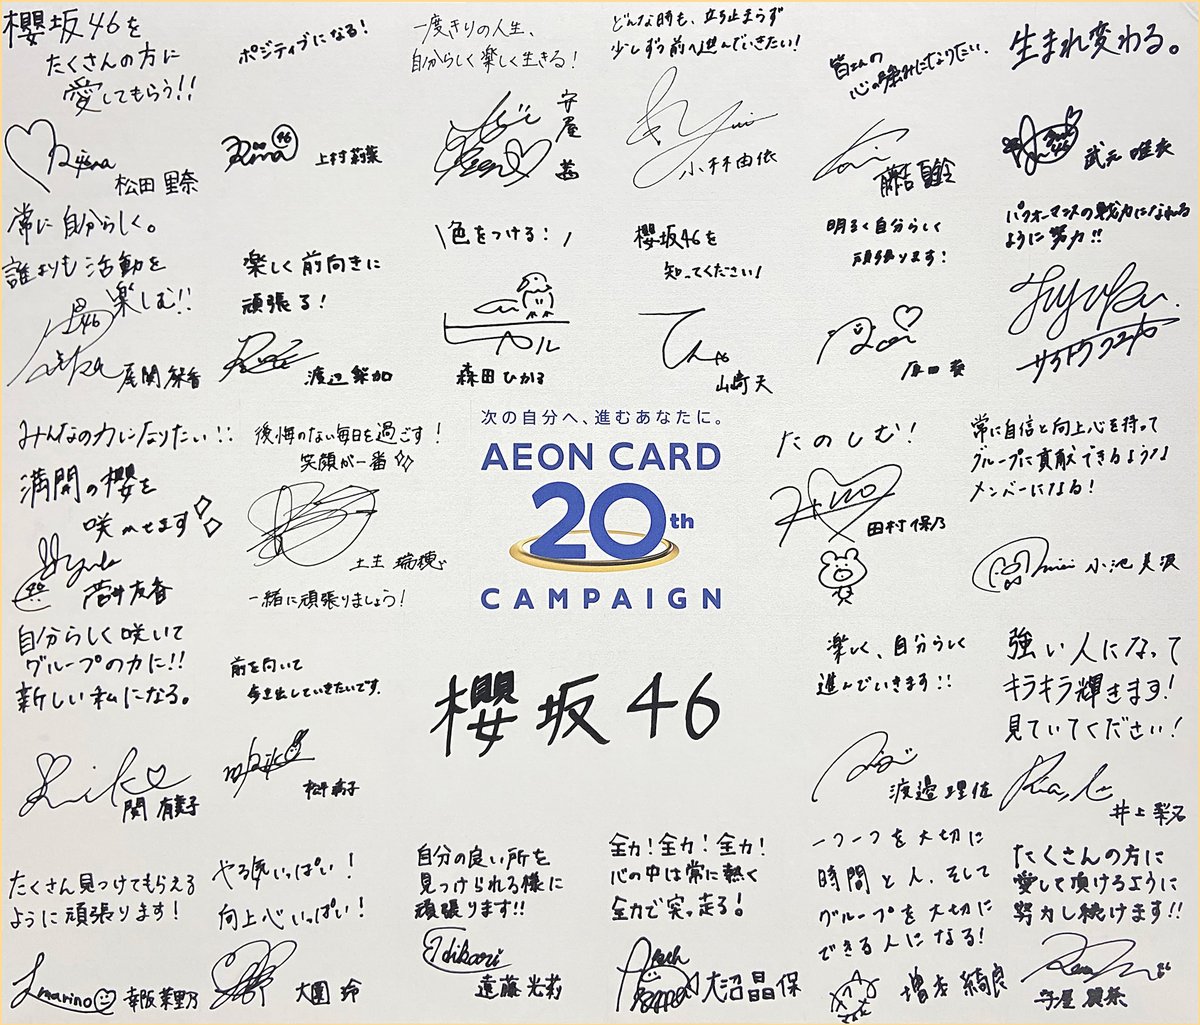 櫻坂46を
たくさんの方に
愛してもらう!!
松田 里奈
ポジティブになる!
Rina 46
上村莉菜
一度きりの人生、
自分らしく楽しく生きる!
守屋
茜
どんな時も、立ち止まらず
少しずつ前へ進んでいきたい!
Yui
小林由依
皆さんの
心の強みになりたい.
藤吉夏鈴
生まれ変わる。
武元 唯衣
常に自分らしく。
誰よりも活動を
楽しむ!!
46
尾関 梨香
楽しく前向きに
頑張る!
渡辺 梨加
\色をつける!/
森田ひかる
櫻坂46を
知ってください!
てん
山﨑 天
明るく自分らしく
頑張ります!
原田 葵
パフォーマンスの戦力になれる
ように努力!!
Fuyuka.
サイトウフユカ
みんなの力になりたい!!
満開の櫻を
咲かせます
Yuuka
菅井友香
後悔のない毎日を過ごす!
笑顔が一番
土生 瑞穂
一緒に頑張りましょう!
次の自分へ、進むあなたに。
AEON CARD
20th
CAMPAIGN
櫻坂46
たのしむ!
Hono
田村 保乃
常に自信と向上心を持って
グループに貢献できるような
メンバーになる!
小池 美波
自分らしく咲いて
グループの力に!!
新しい私になる。
関 有美子
前を向いて
歩き出していきたいです.
松平 璃子
楽しく、自分らしく
進んでいきます!!
渡邉 理佐
強い人になって
キラキラ輝きます!
見ていてください!
井上 梨名
たくさん見つけてもらえる
ように頑張ります!
marino
幸阪 茉里乃
やる気いっぱい!
向上心いっぱい!
大園 玲
自分の良い所を
見つけられる様に
頑張ります!!
Hikari
遠藤 光莉
全力!全力!全力!
心の中は常に熱く
全力で突っ走る!
大沼晶保
一つ一つを大切に
時間と人、そして
グループを大切に
できる人になる!
増本 綺良
たくさんの方に
愛して頂けるように
努力し続けます!!
守屋 麗奈